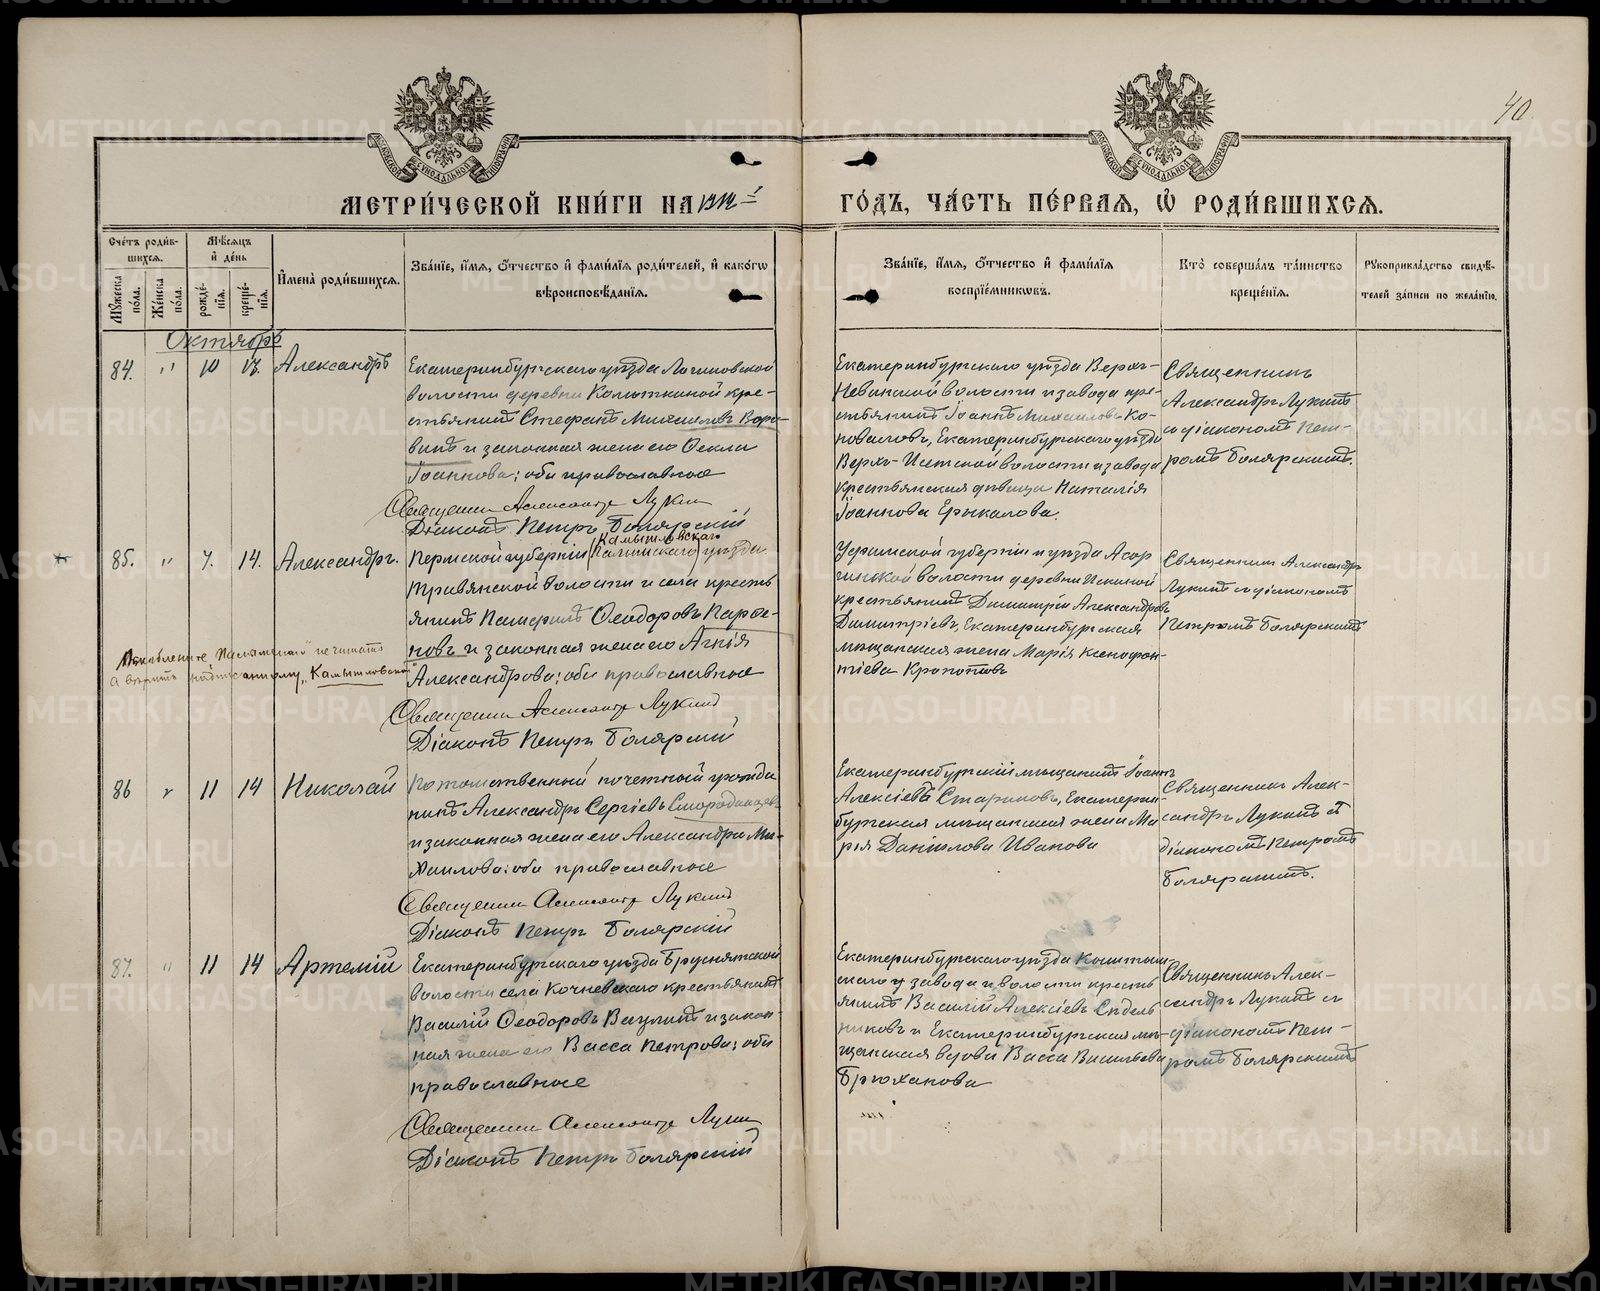 40
МОСКОВСКОЙ СУНОДАЛЬНОЙ ТИПОГРАФІИ
МОСКОВСКОЙ СУНОДАЛЬНОЙ ТИПОГРАФІИ
МЕТРИ́ЧЕСКОЙ КНИ́ГИ НА
ГО́ДЪ, ЧА́СТЬ ПЕ́РВАЯ, Ѡ РОДИ́ВШИХСЯ.
Сче́тъ роди́в-
шихся.
Му́жеска по́ла.
Же́нска по́ла.
Мѣ́сяцъ
и де́нь
рожде́-
нія.
креще́-
нія.
Имена̀ роди́вшихся.
Зва́ніе, и́мя, о́тчество и фами́лія роди́телей, и како́гѡ
вѣроисповѣ́данія.
Зва́ніе, и́мя, о́тчество и фами́лія
воспріе́мниковъ.
Кто̀ соверша́лъ та́инство
креще́нія.
Рукоприкла́дство свидѣ́-
телей за́писи по жела́нію.
Октябрь
84. " 10 Александръ
Екатеринбургскаго уѣзда Логиновской
волости деревни Колюткиной кре-
стьянинъ Стефанъ Михаиловъ Воро-
бинъ и законная жена его Ѳекла
Іоаннова; оба православные
Священникъ Александръ Лукинъ
Діаконъ Петръ Болярскій
Екатеринбургскаго уѣзда Верхъ-
Нейвинской волости и завода кре-
стьянинъ Іоаннъ Михаиловъ Ко-
новаловъ, Екатеринбургскаго уѣзда
Верхъ-Исетской волости и завода
крестьянская дѣвица Наталія
Іоаннова Ерыкалова.
Священникъ
Александръ Лукинъ
съ діакономъ Пет-
ромъ Болярскимъ.
85. " 7. 14. Александръ.
Камышловскаго
Пермской губерніи уѣзда
Травянской волости и села кресть
янинъ Памфилъ Ѳеодоровъ Парѳе-
новъ и законная жена его Агнія
Александрова; оба православные
Священникъ Александръ Лукинъ
Діаконъ Петръ Болярскій
не читать
а вѣрить надписанному "Камышловскаго"
Уфимской губерніи и уѣзда
волости деревни
крестьянинъ Димитрій Александровъ
Димитріевъ, Екатеринбургская
мѣщанская жена Марія Ксенофон-
тіева Кропотова
Священникъ Александръ
Лукинъ съ діакономъ
Петромъ Болярскимъ
86 " 11 14 Николай
Потомственный почетный гражда
нинъ Александръ Сергіевъ Смородинцевъ
и законная жена его Александра Ми-
хаилова; оба православные
Священникъ Александръ Лукинъ
Діаконъ Петръ Болярскій
Екатеринбургскій мѣщанинъ Іоаннъ
Алексіевъ Стариковъ, Екатерин-
бургская мѣщанская жена Ма
рія Данилова Иванова
Священникъ Алек-
сандръ Лукинъ съ
діакономъ Петромъ
Болярскимъ.
87. " 11 14 Артемій
Екатеринбургскаго уѣзда Бруснятской
волости села Кочневскаго крестьянинъ
Василій Ѳеодоровъ Ваулинъ и закон-
ная жена его Васса Петрова; оба
православные
Священникъ Александръ Лукинъ
Діаконъ Петръ Болярскій
Екатеринбургскаго уѣзда Кыштым-
скаго завода и волости кресть
янинъ Василій Алексіевъ Сѣдель
никовъ и Екатеринбургская мѣ-
щанская вдова Васса Васильева
Брюханова
Священникъ Алек-
сандръ Лукинъ съ
діакономъ Пет-
ромъ Болярскимъ
METRIKI.GASO-URAL.RU